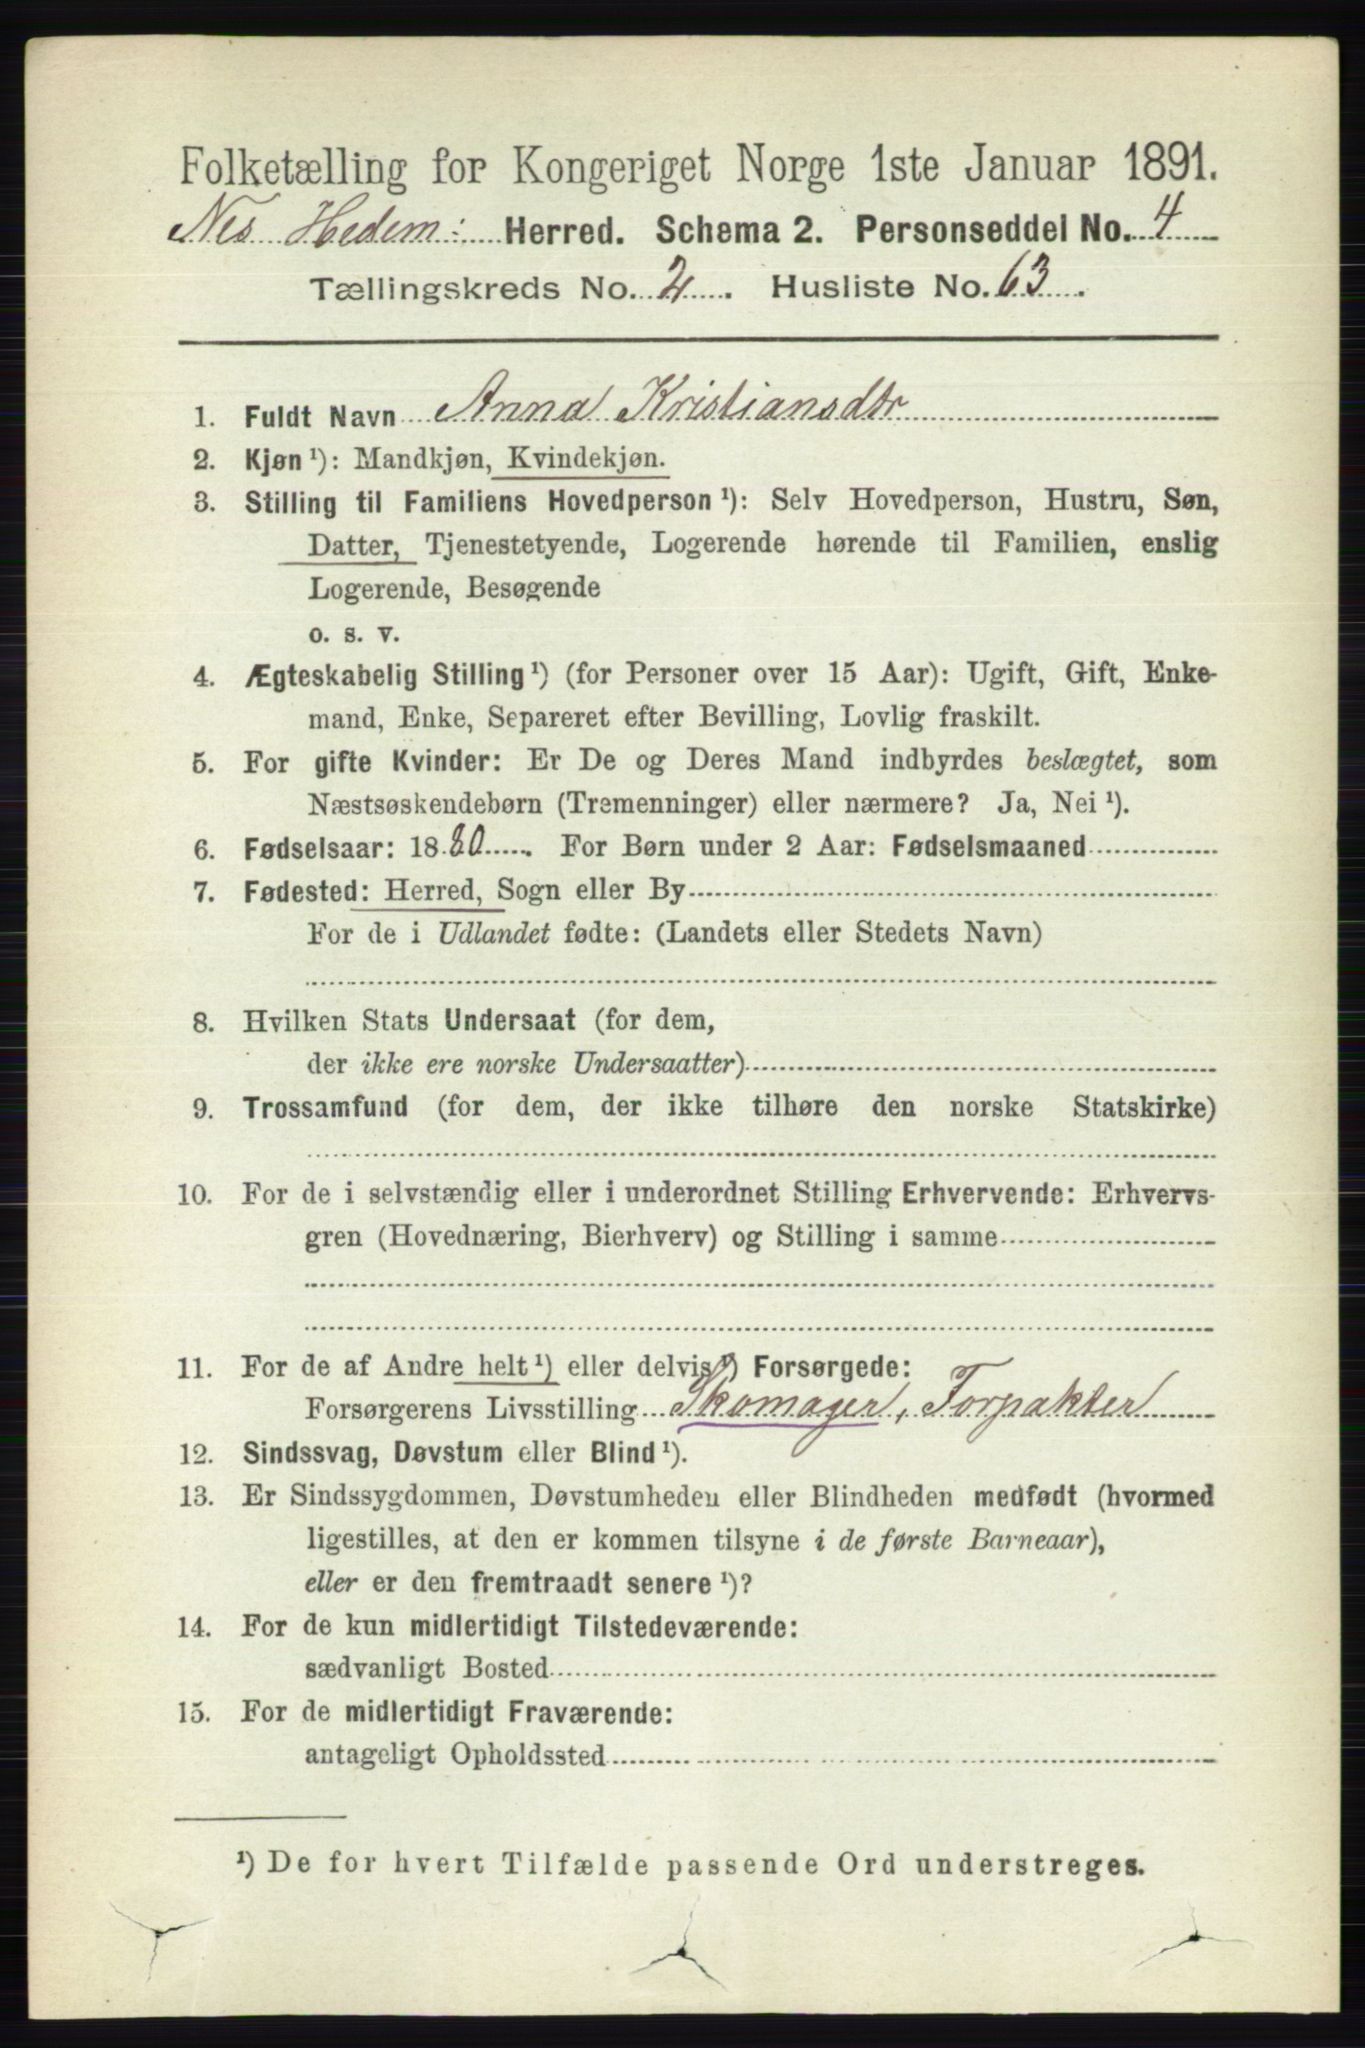 Folketælling for Kongeriget Norge 1ste Januar 1891.
Nes Hedem: Herred. Schema 2. Personseddel No. 4
Tællingskreds No. 2. Husliste No. 63.
1. Fuldt Navn Anna Kristiansdtr
2. Kjøn ¹): Mandkjøn, Kvindekjøn.
3. Stilling til Familiens Hovedperson ¹): Selv Hovedperson, Hustru, Søn,
Datter, Tjenestetyende, Logerende hørende til Familien, enslig
Logerende, Besøgende
o. s. v.
4. Ægteskabelig Stilling ¹) (for Personer over 15 Aar): Ugift, Gift, Enke-
mand, Enke, Separeret efter Bevilling, Lovlig fraskilt.
5. For gifte Kvinder: Er De og Deres Mand indbyrdes beslægtet, som
Næstsøskendebørn (Tremenninger) eller nærmere? Ja, Nei ¹).
6. Fødselsaar: 1880. For Børn under 2 Aar: Fødselsmaaned
7. Fødested: Herred, Sogn eller By
For de i Udlandet fødte: (Landets eller Stedets Navn)
8. Hvilken Stats Undersaat (for dem,
der ikke ere norske Undersaatter)
9. Trossamfund (for dem, der ikke tilhøre den norske Statskirke)
10. For de i selvstændig eller i underordnet Stilling Erhvervende: Erhvervs-
gren (Hovednæring, Bierhverv) og Stilling i samme
11. For de af Andre helt ¹) eller delvis ¹) Forsørgede:
Forsørgerens Livsstilling Skomager, Forpakter
12. Sindssvag, Døvstum eller Blind ¹).
13. Er Sindssygdommen, Døvstumheden eller Blindheden medfødt (hvormed
ligestilles, at den er kommen tilsyne i de første Barneaar),
eller er den fremtraadt senere ¹)?
14. For de kun midlertidigt Tilstedeværende:
sædvanligt Bosted
15. For de midlertidigt Fraværende:
antageligt Opholdssted
¹) De for hvert Tilfælde passende Ord understreges.